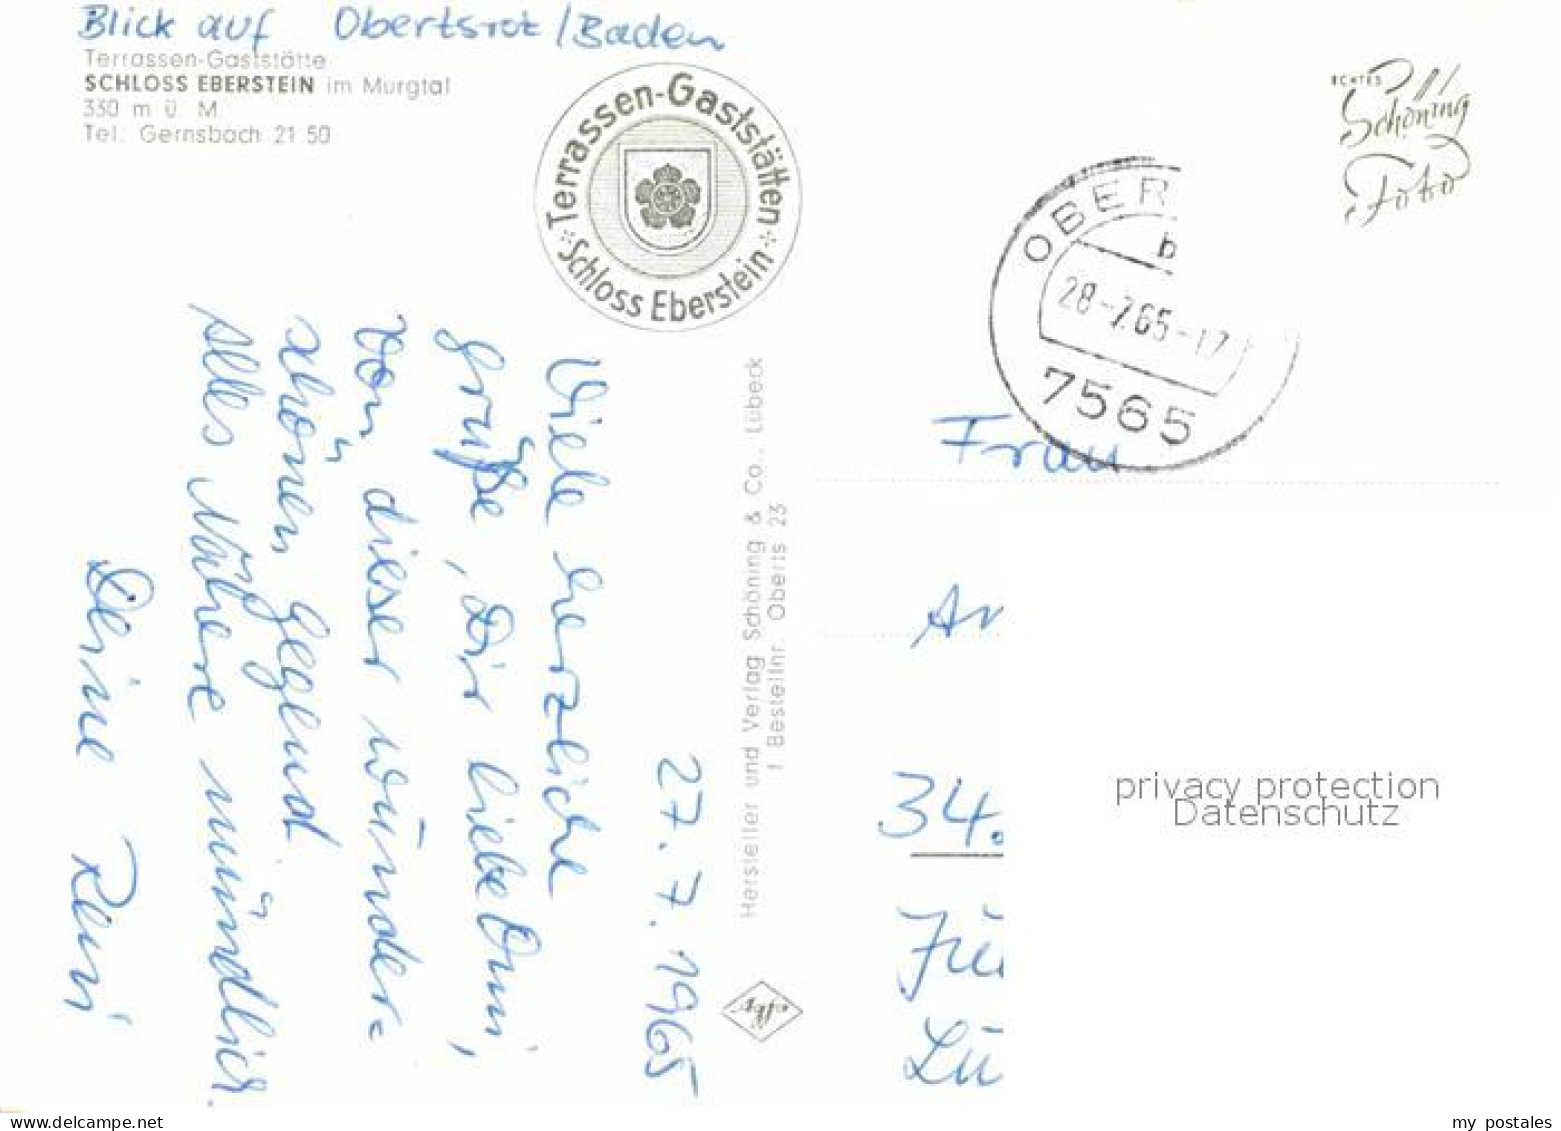 Blick auf Obertsrot/Baden
Terrassen-Gaststätte
SCHLOSS EBERSTEIN im Murgtal
330 m ü. M.
Tel. Gernsbach 21 50
Terrassen-Gaststätten
Schloss Eberstein
27. 7. 1965
Viele herzliche
Grüße, Dir liebe Omi,
von dieser wunder=
schönen Gegend
Alles Nähere mündlich.
Deine Reni
Hersteller und Verlag Schöning & Co., Lübeck
1 Bestellnr. Oberts 23
Agfa
ECHTES
Schöning
Foto
OBER
b
28-7.65-17
7565
Frau
An
34.
Lü
privacy protection
Datenschutz
my postales